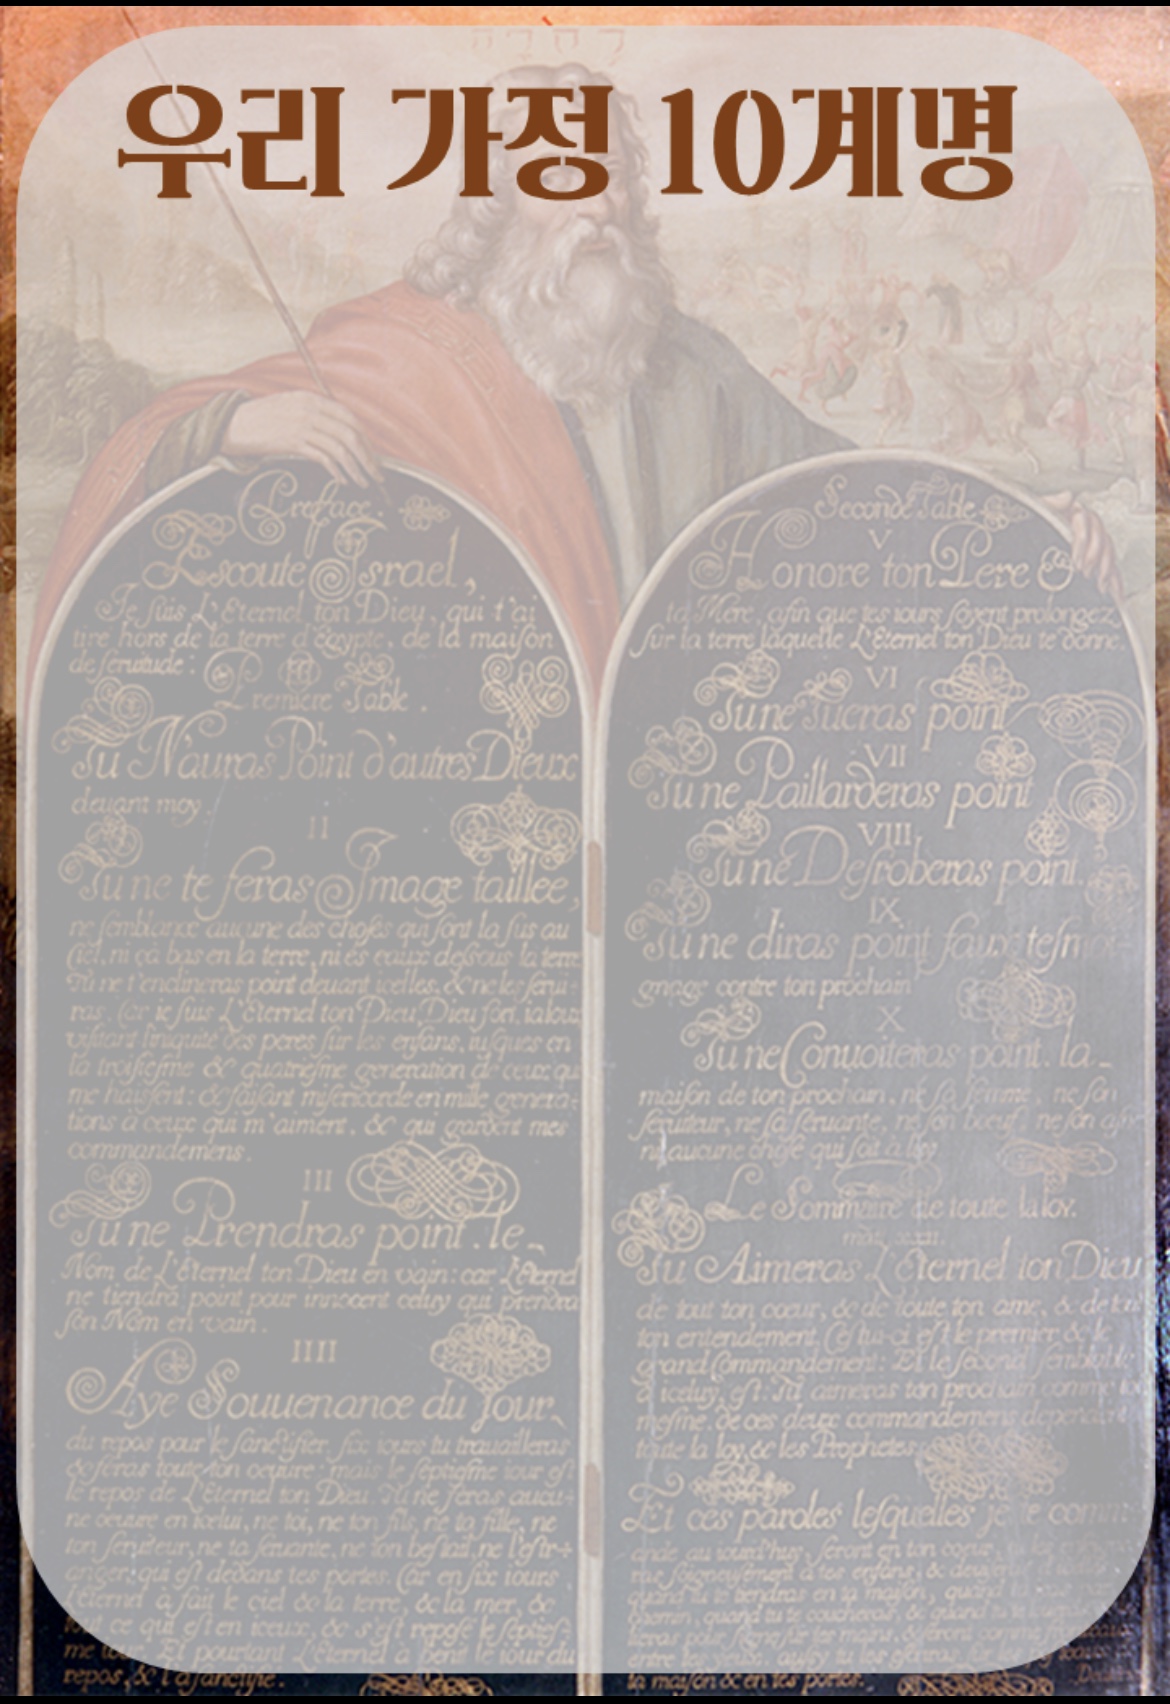 우리 가정 10계명
Preface.
Escoute Israel,
Je suis L'Eternel ton Dieu, qui t'ai
tiré hors de la terre d'Egypte, de la maison
de seruitude:
Premiere Table.
Tu N'auras Point d'autres Dieux
deuant moy.
II
Tu ne te feras Image taillée,
ne semblance aucune des choses qui sont la sus au
Ciel, ni çà bas en la terre, ni és eaux dessous la terre
Tu ne t'enclineras point deuant icelles, & ne les serui-
ras. Car ie suis L'Eternel ton Dieu, Dieu fort, ialoux
visitant l'iniquité des peres sur les enfans, iusques en
la troisiesme & quatriesme generation de ceux qui
me haissent: & faisant misericorde en mille genera-
tions à ceux qui m'aiment, & qui gardent mes
commandemens.
III
Tu ne Prendras point le
Nom de L'Eternel ton Dieu en vain: car L'Eternel
ne tiendra point pour innocent celuy qui prendra
son Nom en vain.
IIII
Aye Souuenance du Jour
du repos pour le sanctifier, six iours tu trauailleras
& feras toute ton oeuure: mais le septiesme iour est
le repos de L'Eternel ton Dieu. Tu ne feras aucu-
ne oeuure en icelui, ne toi, ne ton fils, ne ta fille, ne
ton seruiteur, ne ta seruante, ne ton bestail, ne l'estr-
anger, qui est dedans tes portes. Car en six iours
l'Eternel a fait le ciel & la terre, & la mer, &
tout ce qui est en iceux, & s'est reposé le septies-
me iour. Et pourtant L'Eternel a benit le iour du
repos, & l'a sanctifié.
Seconde Table
V
Honore ton Pere &
ta Mere, afin que tes iours soyent prolongez
sur la terre laquelle L'Eternel ton Dieu te donne.
VI
Tu ne Tueras point
VII
Tu ne Paillarderas point
VIII
Tu ne Desroberas point.
IX
Tu ne diras point faux tesmoi-
gnage contre ton prochain
X
Tu ne Conuoiteras point la
maison de ton prochain, ne sa femme, ne son
seruiteur, ne sa seruante, ne son boeuf, ne son asne
ne aucune chose qui soit à luy
Le Sommaire de toute la loy.
Tu Aimeras L'Eternel ton Dieu
de tout ton coeur, & de toute ton ame, & de tout
ton entendement. Cestui-ci est le premier & le
grand Commandement: Et le second semblable
à iceluy, est: Tu aimeras ton prochain comme toi
mesme. de ces deux commandemens dependent
toute la loy & les Prophetes
Et ces paroles lesquelles je te comm-
ande au iourd'huy, seront en ton coeur
la maison & en tes portes.